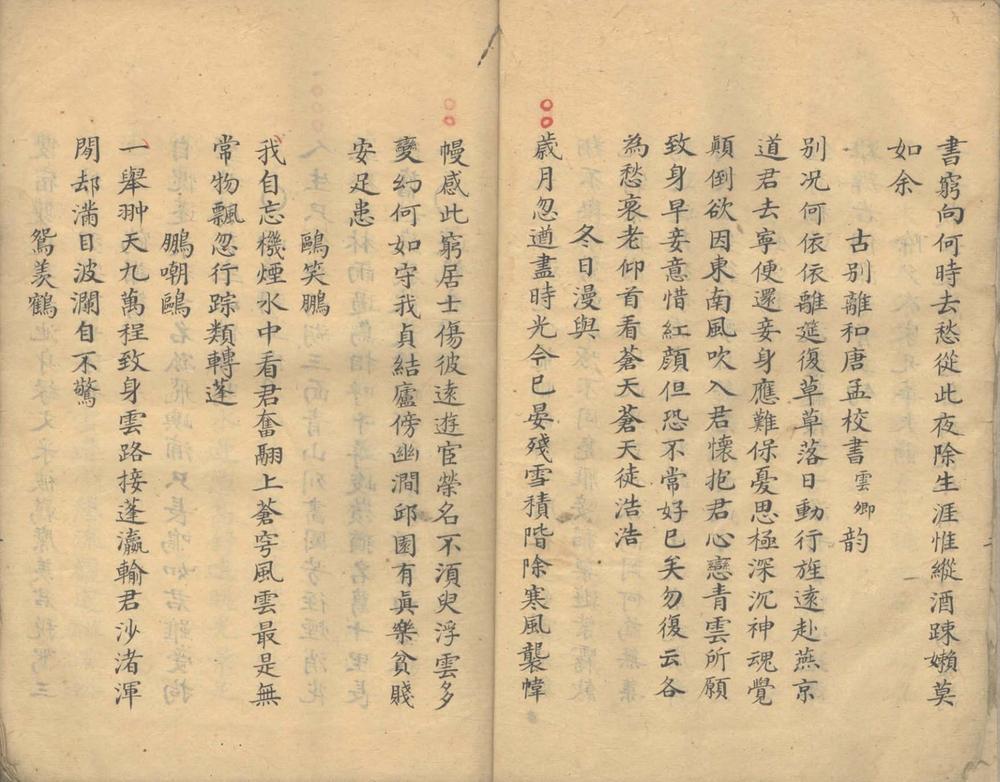 書窮向何時去愁從此夜除生涯惟縱酒踈嬾莫
如余
古別離和唐孟校書雲卿韵
別况何依依離筵復草草落日動行旌遠赴燕京
道君去寧便還妾身應難保憂思極深沉神魂覺
顛倒欲因東南風吹入君懷抱君心戀青雲所願
致身早妾意惜紅顔但恐不常好已矣勿復云各
為愁衰老仰首看蒼天蒼天徒浩浩
冬日漫與
歲月忽遒盡時光今已晏殘雪積階除寒風襲幃
幔感此窮居士傷彼遠遊宦榮名不須臾浮雲多
變幻何如守我貞結廬傍幽澗邱園有眞樂貧賤
安足患
鷗笑鵬
我自忘機煙水中看君奮翮上蒼穹風雲最是無
常物飄忽行踪類轉蓬
鵬嘲鷗
一舉翀天九萬程致身雲路接蓬瀛輸君沙渚渾
閒却滿目波瀾自不驚
鴛羡鶴